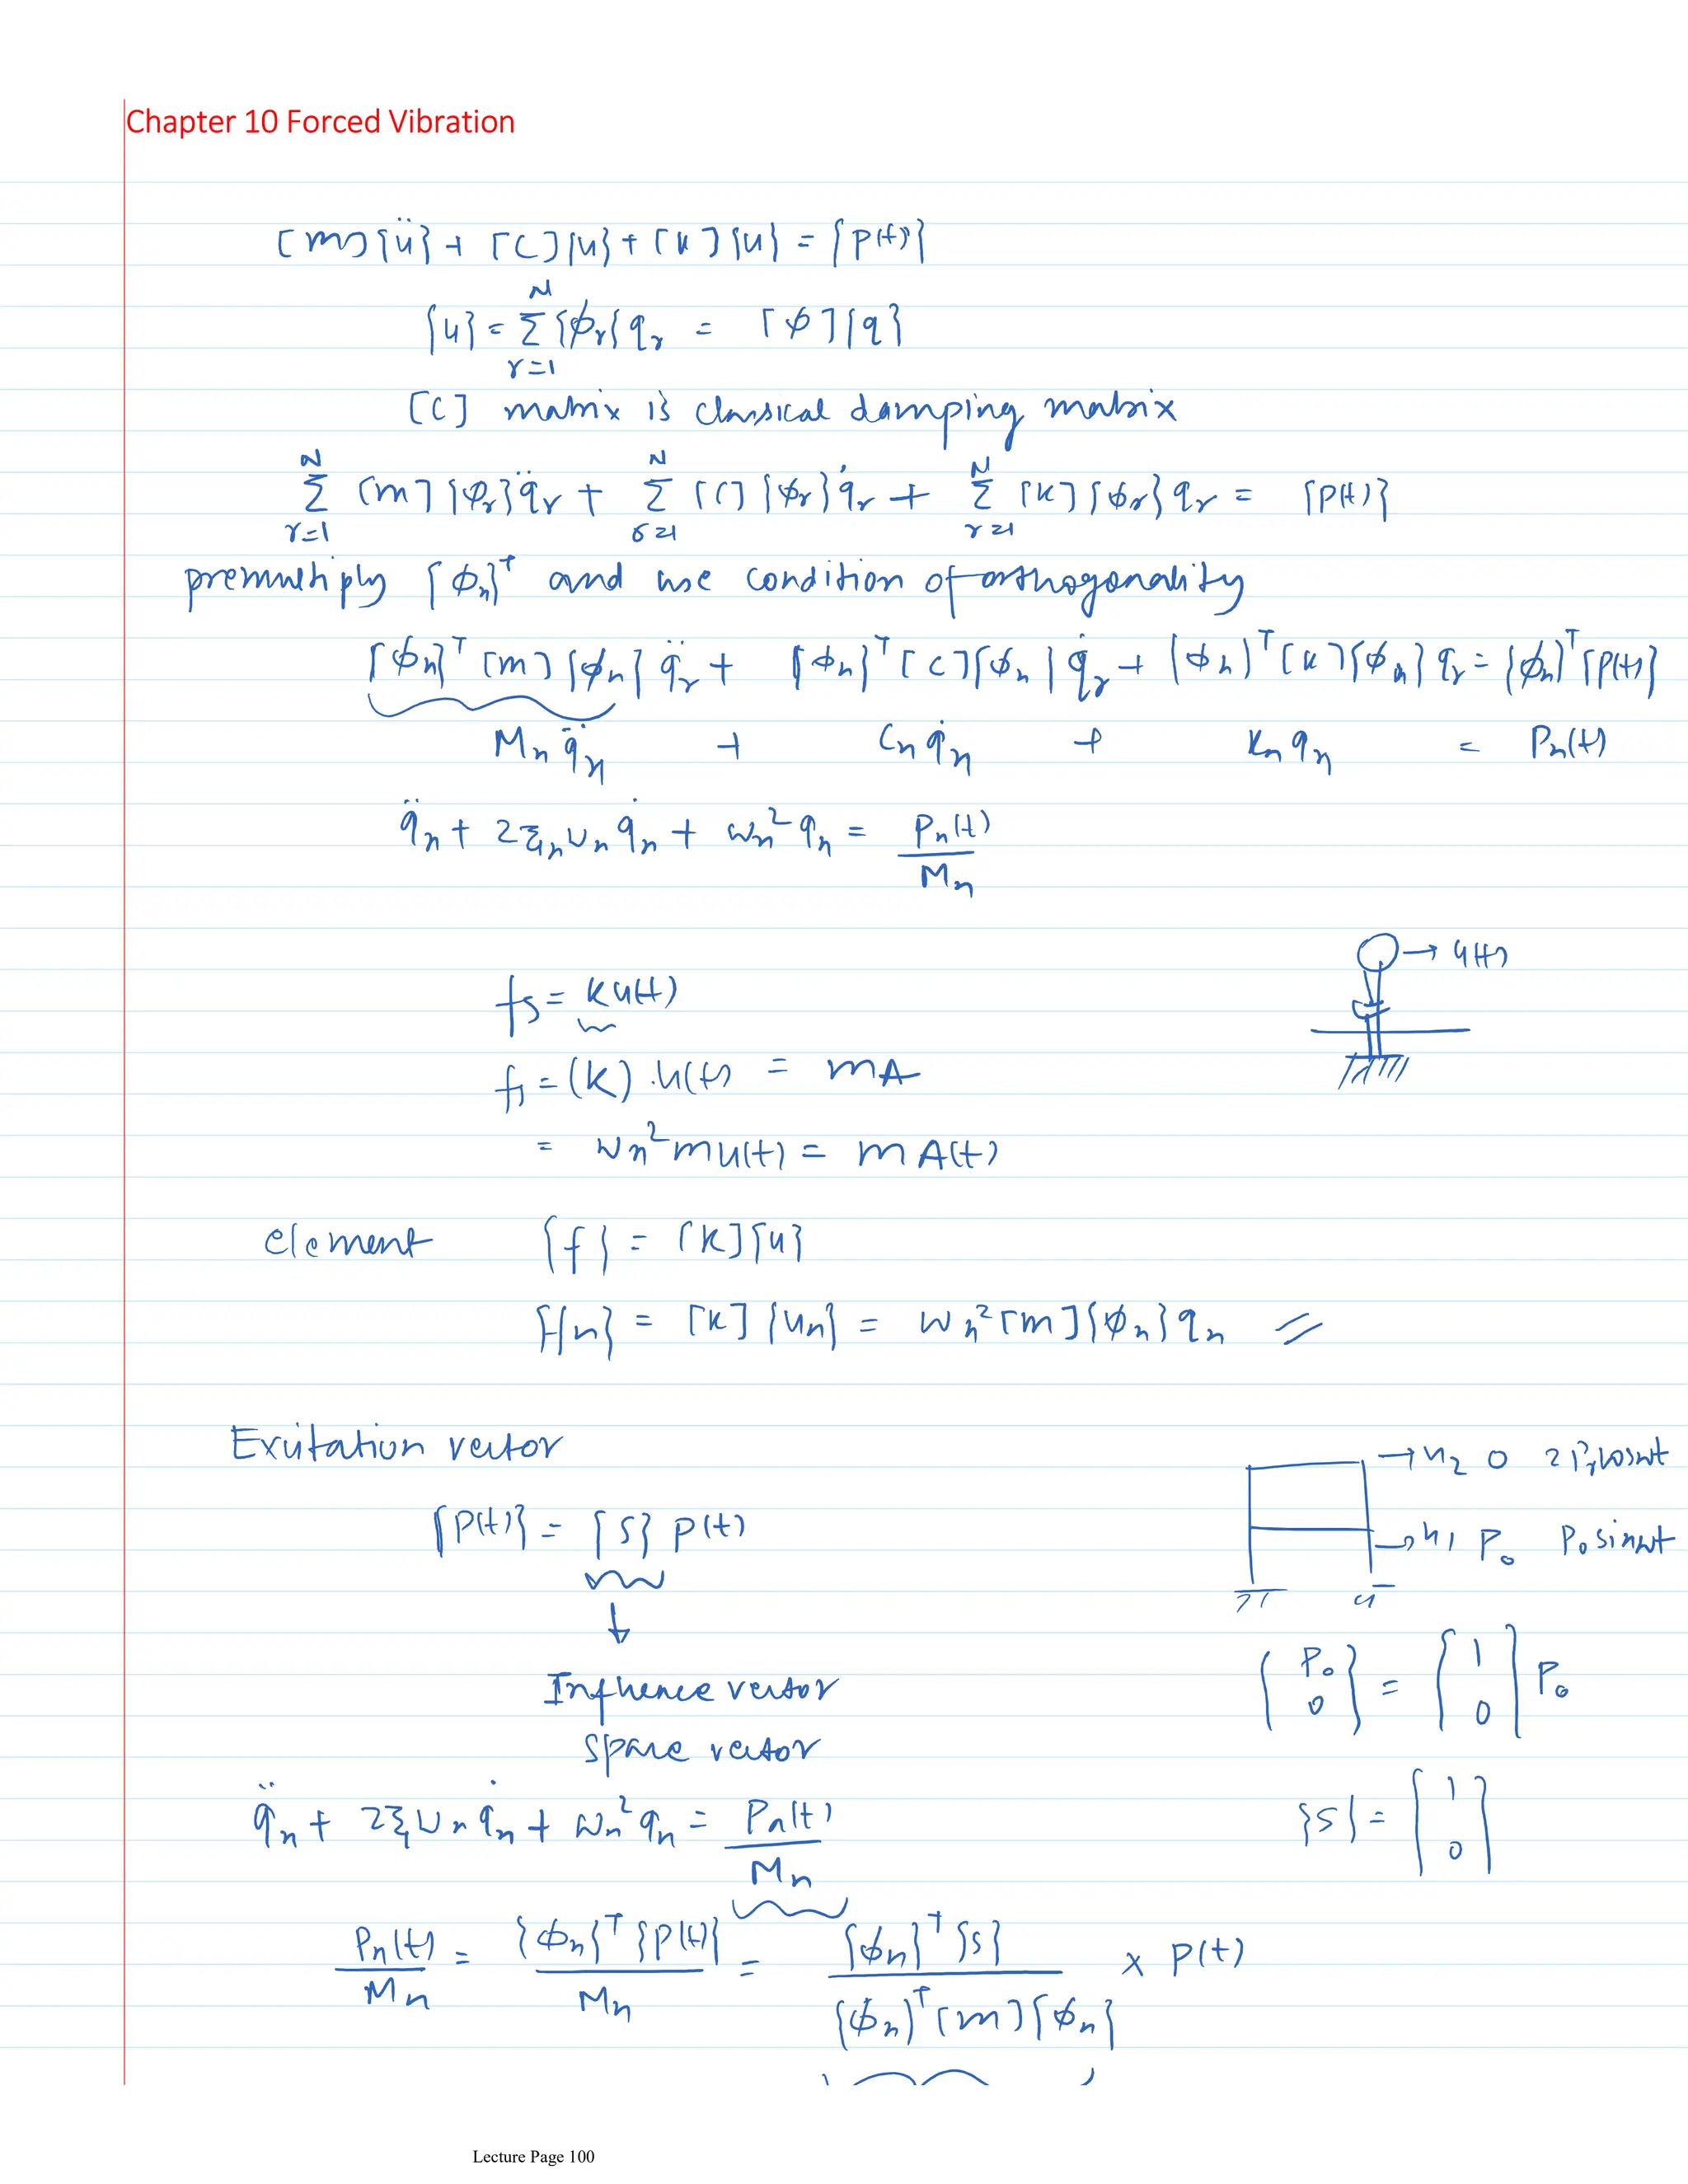 Chapter 10 Forced Vibration
[m]{ü} + [C]{u} + [k]{u} = {P(t)}
{u} = Σ_{r=1}^{N} {φr} qr = [φ]{q}
[C] matrix is classical damping matrix
Σ_{r=1}^{N} [m]{φr} q̈r + Σ_{r=1}^{N} [C]{φr} q̇r + Σ_{r=1}^{N} [k]{φr} qr = {P(t)}
premultiply {φn}ᵀ and use condition of orthogonality
{φn}ᵀ [m] {φn} q̈r + {φn}ᵀ [C] {φn} q̇r + {φn}ᵀ [k] {φn} qr = {φn}ᵀ {P(t)}
Mn q̈n + Cn q̇n + Kn qn = Pn(t)
q̈n + 2ξn ωn q̇n + ωn² qn = Pn(t) / Mn
u(t)
fs = k u(t)
fs = (k) . u(t) = mA
= ωn² m u(t) = m A(t)
element {f} = [k]{u}
{fn} = [k] {un} = ωn² [m]{φn} qn
Exitation vector
u2 0 2P1 cosωt
{P(t)} = {S} P(t)
u1 P0 P0 sinωt
Influence vector
{P0 0} = {1 0} P0
space vector
q̈n + 2ξ ωn q̇n + ωn² qn = Pn(t) / Mn
{S} = {1 0}
Pn(t) / Mn = {φn}ᵀ {P(t)} / Mn = {φn}ᵀ {S} / {φn}ᵀ [m] {φn} × P(t)
Lecture Page 100